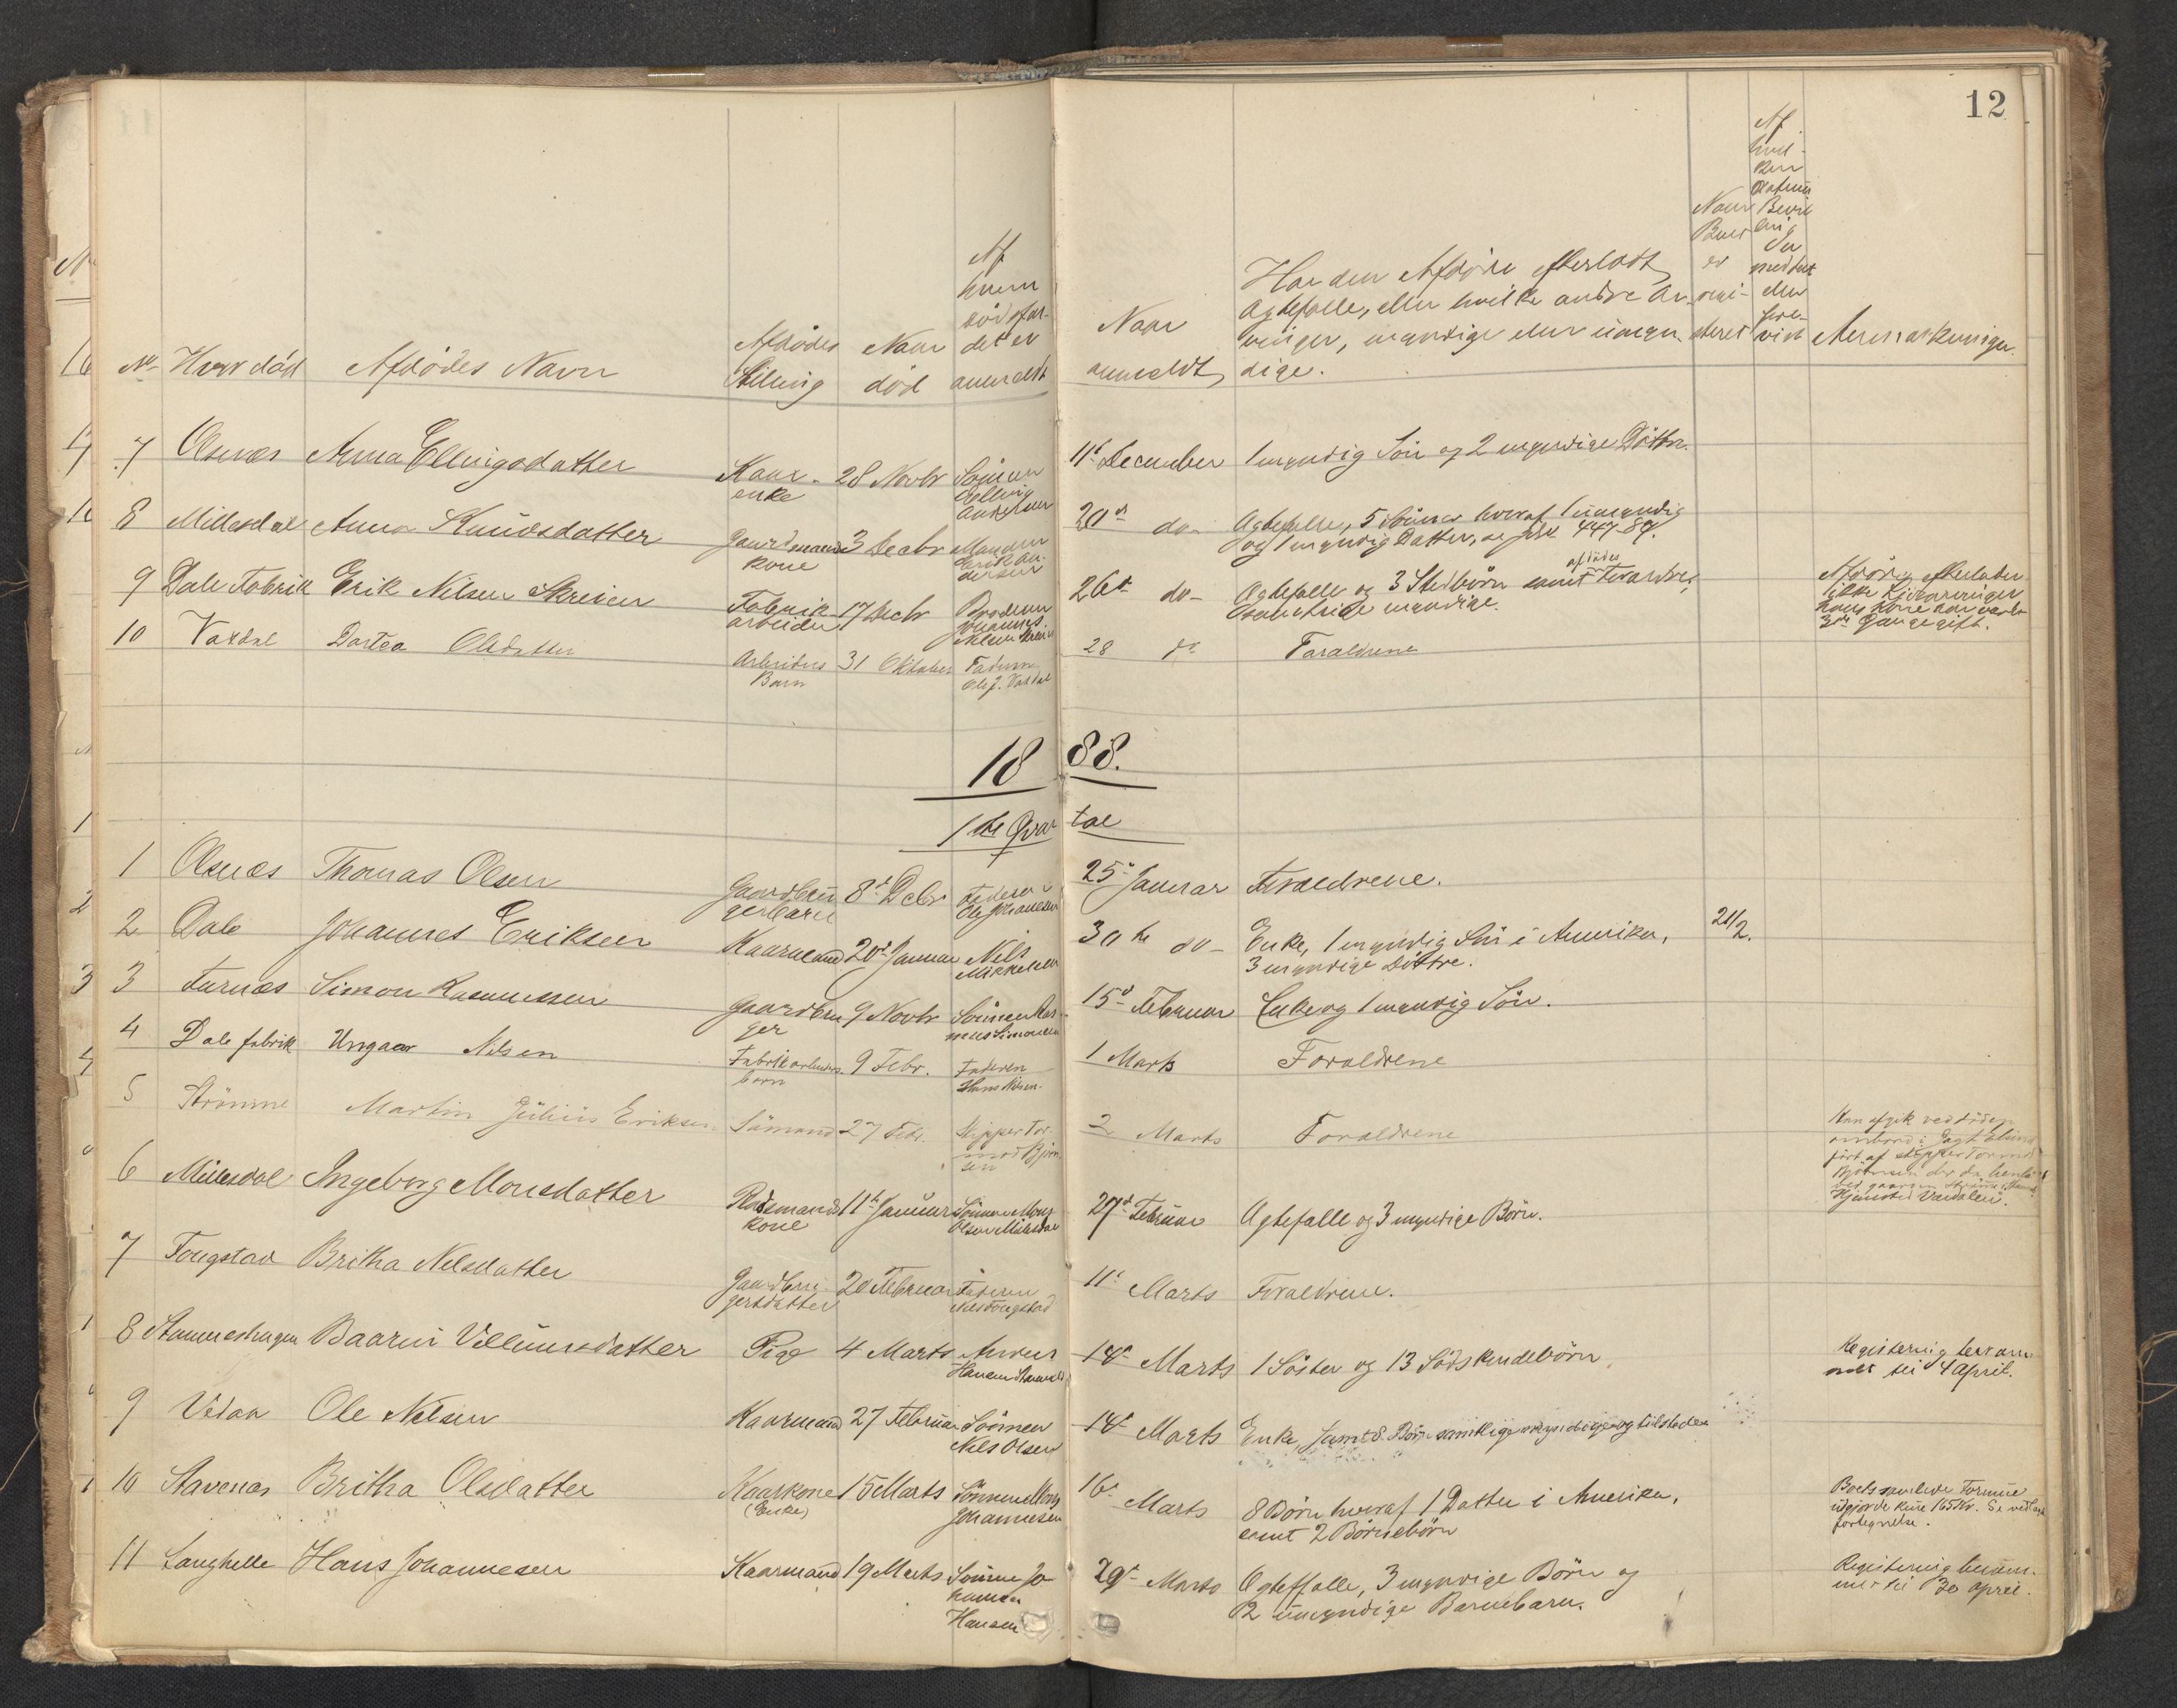 12
No Hvor död Afdödes Navn Afdödes Stilling Naar död Af hvem dödsfaldet er anmeldt Naar anmeldt Har den Afdöde efterladt Ægtefælle, eller hvilke andre Arvinger, myndige eller umyndige. Naar Boet er registreret Anmærkninger.
7 Olsnæs Anna Ellingsdatter Kaarenke 28 Novbr Sönnen Elling 11t December 1 myndig Sön og 2 myndige Döttre.
8 Millesdal Anna Knudsdatter Gaardmands kone 3 Decbr Manden Erik Andersen 20de do- Ægtefælle, 5 Sönner hvoraf 1 umyndig
og 1 myndig Datter, 447-89.
9 Dale Fabrik Erik Nilsen Skreien Fabrikarbeider 17 Decbr Broderen Johannes Nilsen Skreien 26de do- Ægtefælle og 3 Stedbörn samt afdödes Forældre,
myndige.
Afdöde efterlader
ikke Livsarvinger
hans Kone har været
3de Gange gift.
10 Vaxdal Dortea Olsdatter Arbeiders Barn 31 Oktober Faderen Ole J. Vaxdal 28 do Forældrene
1888.
1ste Qvartal
1 Olsnæs Thomas Olsen Gaardbrugerbarn 8de Dcbr Faderen Ole Johannesen 25de Januar Forældrene.
2 Dale Johannes Eriksen Kaarmand 20de Januar Nils Mikkelsen 30te do- Enke, 1 myndig Sön i Amerika,
3 myndige Döttre. 21/2.
3 Furnæs Simon Rasmussen Gaardbruger 9 Novbr Sönnen Rasmus Simonsen 15de Februar Enke og 1 myndig Sön.
4 Dale fabrik Ungaar Nilsen Fabrikarbeiders barn 9 Febr. Faderen Hans Nilsen. 1 Marts Forældrene
5 Strömme Martin Julius Eriksen Sömand 27 Febr. Skipper Tormod Björnsen 2 Marts Forældrene
Han afgik ved döden
ombord i Jagt
fört af skipper Tormod
Björnsen der da
ved gaarden Strömme
Hjemsted Værdalen.
6 Millesdal Ingeborg Monsdatter Kone 11te Januar Sönnen Mons Olsen Millesdal 27de Februar Ægtefælle og 3 myndige Börn.
7 Fougstad Britha Nilsdatter Gaardbrugersdatter 20 Februar Faderen Nils Fougstad 11te Marts Forældrene.
8 Stamneshagen Baarni Villumsdatter Pige 4 Marts Hansen 14de Marts 1 Söster og 13 Södskendebörn
Registering berammet til 4 April.
9 Vidan Ole Nilsen Kaarmand 27 Februar Sönnen Nils Olsen 14de Marts Enke, samt 8 Börn samtlige myndige og tilstede
10 Stavenæs Britha Olsdatter Kaarkone (Enke) 15 Marts Sönnen Mons Johannesen 16de Marts 8 Börn hvoraf 1 Datter i Amerika,
samt 2 Börnebörn
Boets samlede Formue
udgjorde kun 165 Kr. Se vedlagt
fortegnelse.
11 Langhelle Hans Johannesen Kaarmand 19 Marts Sönnen Johannes Hansen 29de Marts Ægtefælle, 3 myndige Börn og
2 umyndige Barnebarn.
Registering berammet til 30 April.